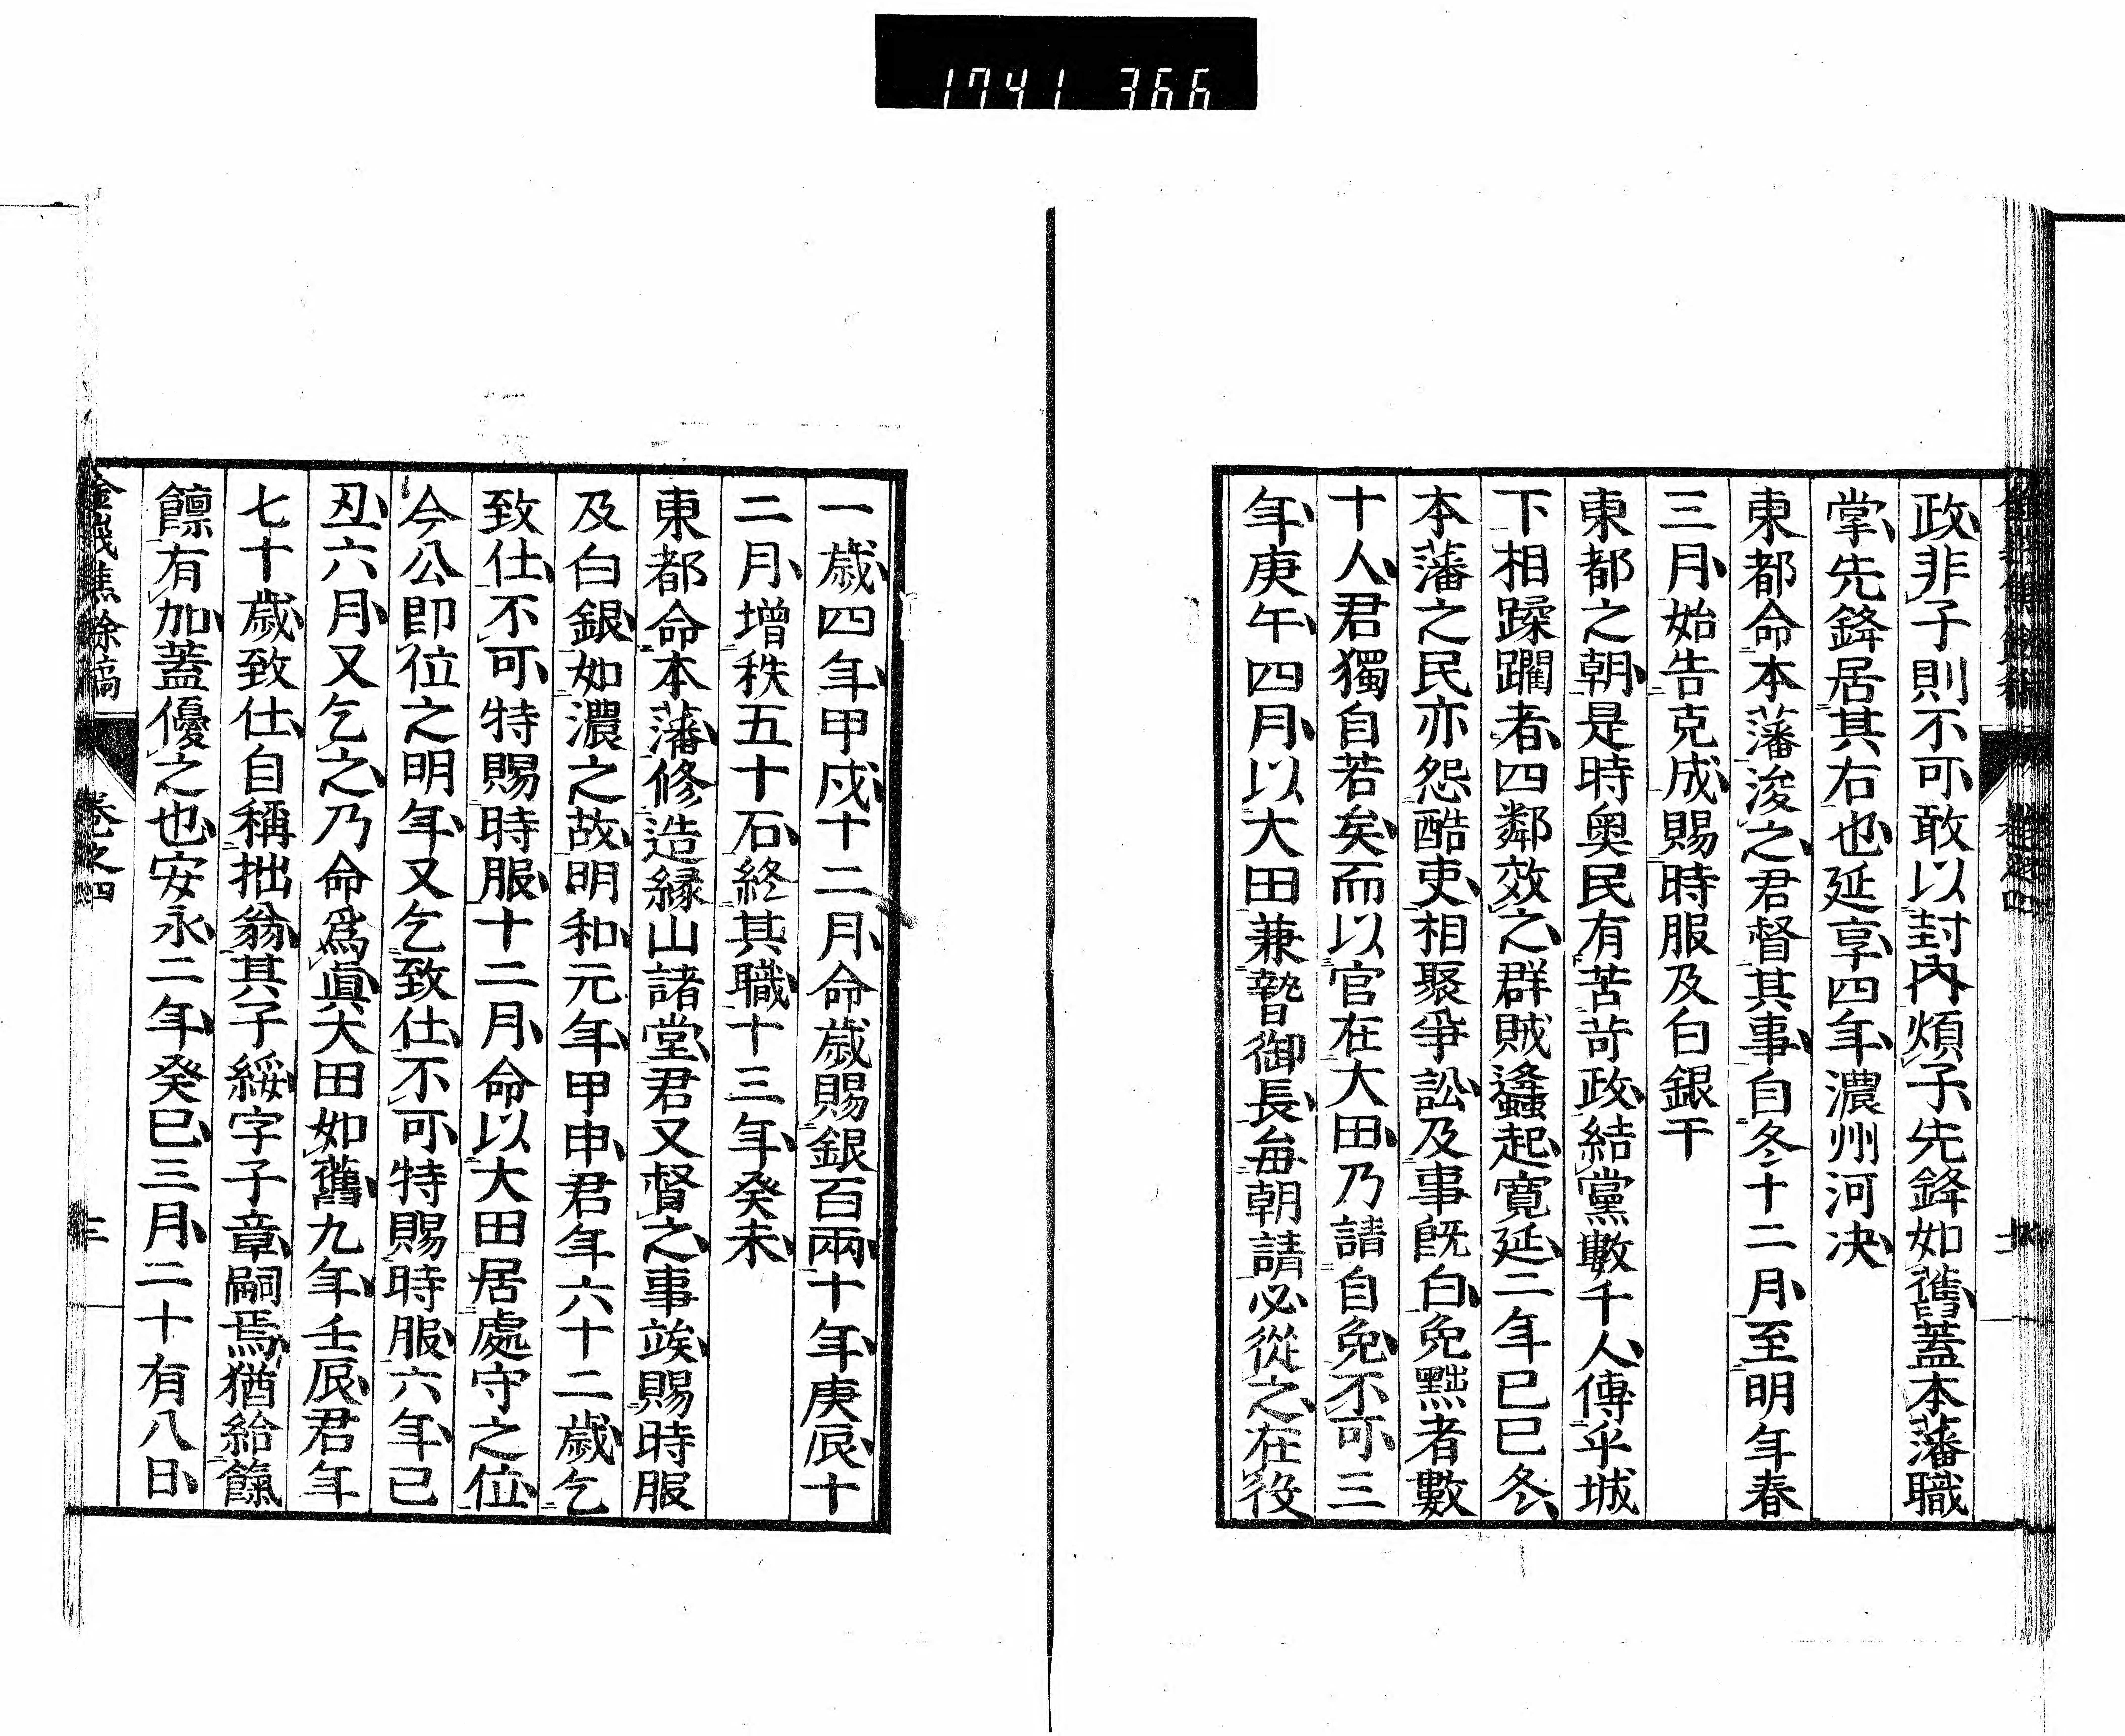 1741 366
政非子則不可敢以封內煩子先鋒如舊蓋本藩職
掌先鋒居其右也延享四年濃州河決
東都命本藩浚之君督其事自冬十二月至明年春
三月始告克成賜時服及白銀干
東都之朝是時奧民有苦苛政結黨數千人傳乎城
下相蹂躙者四鄰效之群賊逢蠭起寬延二年己巳冬
本藩之民亦怨酷吏相聚爭訟及事既白免黜者數
十人君獨自若矣而以官在大田乃請自免不可三
年庚午四月以大田兼贄御長每朝請必從之在役
一歲四年甲戌十二月命歲賜銀百兩十年庚辰十
二月增秩五十石終其職十三年癸未
東都命本藩修造緣山諸堂君又督之事竢賜時服
及白銀如濃之故明和元年甲申君年六十二歲乞
致仕不可特賜時服十二月命以大田居處守之位
今公即位之明年又乞致仕不可特賜時服六年己
丑六月又乞之乃命爲眞大田如舊九年壬辰君年
七十歲致仕自稱拙翁其子綏字子章嗣焉猶給餼
餼有加蓋優之也安永二年癸巳三月二十有八日
金峨焦餘稿 卷之四 三